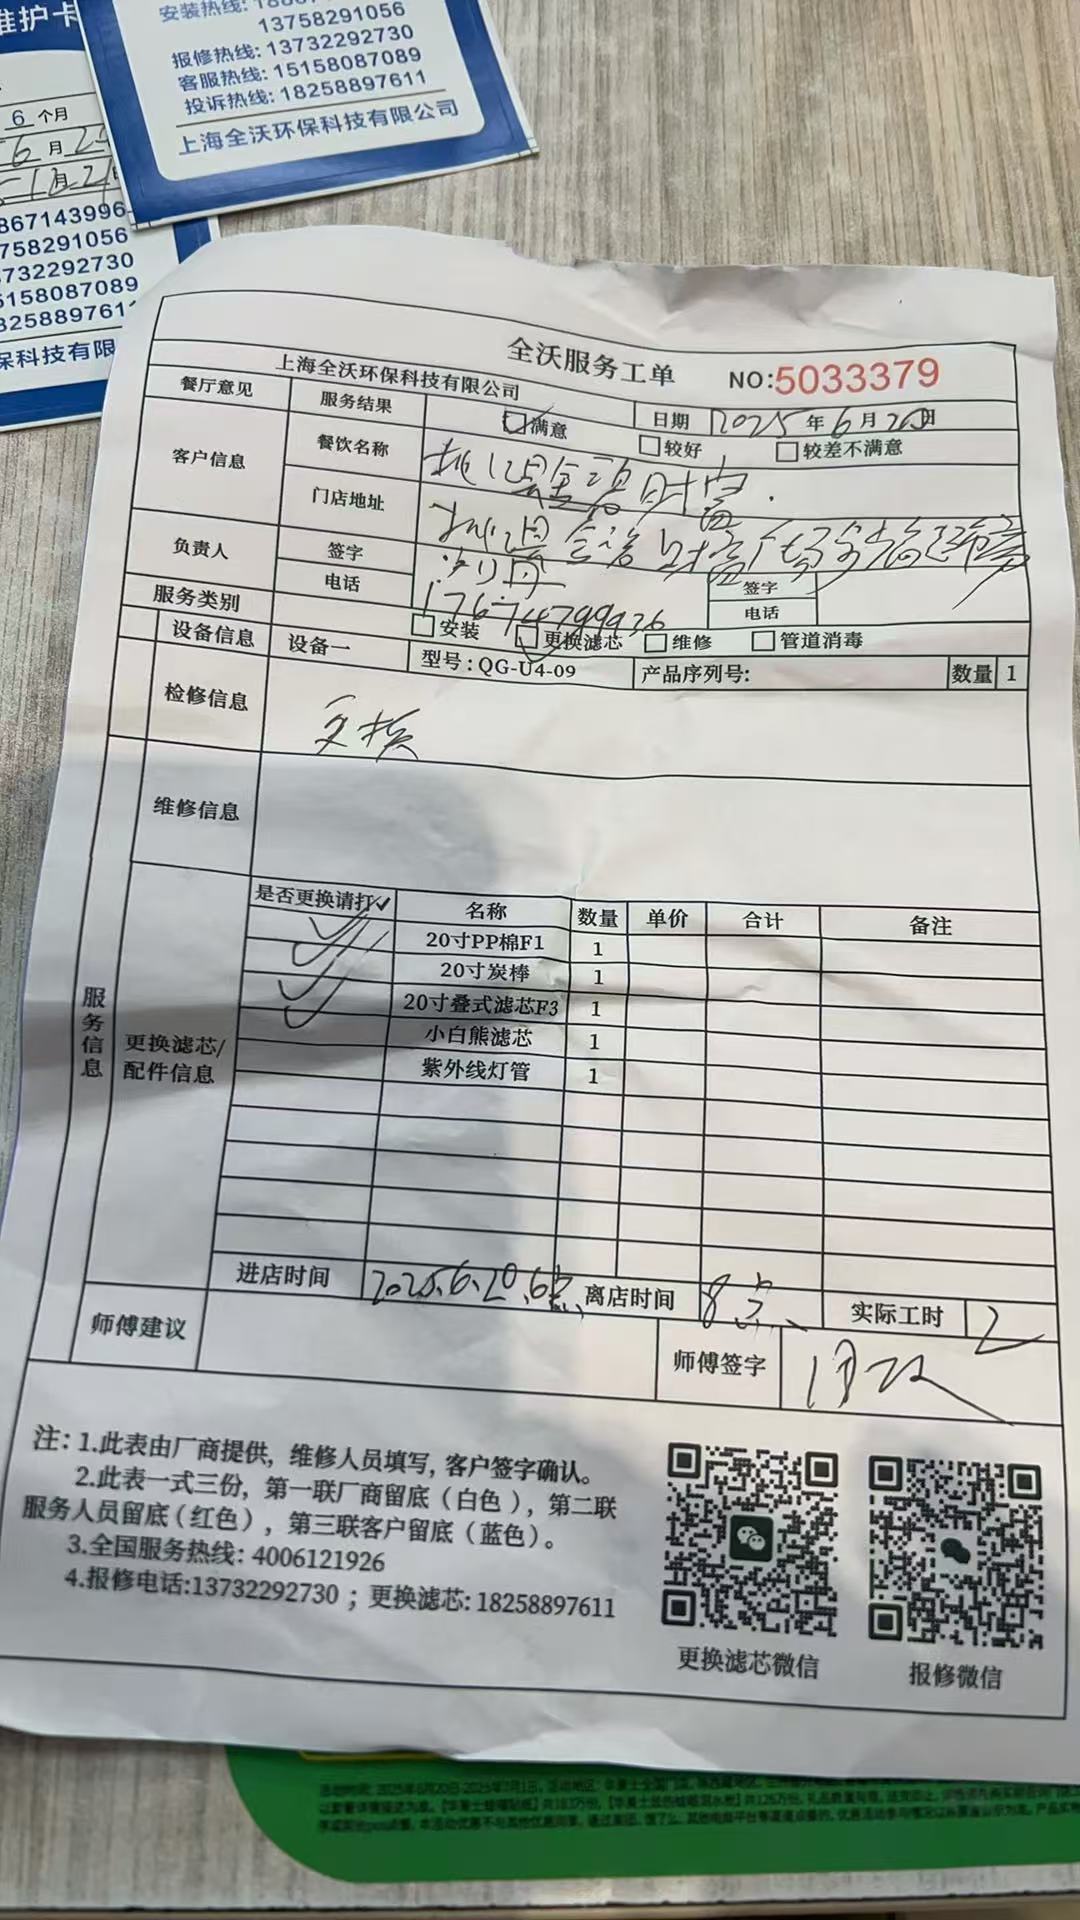 维护卡
6 个月
6 月 2
月 21
8671439964
758291056
732292730
5158087089
825889761
保科技有限
安装热线: 1886
13758291056
报修热线: 13732292730
客服热线: 15158087089
投诉热线: 18258897611
上海全沃环保科技有限公司
全沃服务工单 NO:5033379
上海全沃环保科技有限公司 日期 2025 年 6 月 20 日
餐厅意见 服务结果 满意 较好 较差不满意
客户信息 餐饮名称 财富
门店地址
负责人 签字 签字
电话 17674799936 电话
服务类别 安装 更换滤芯 维修 管道消毒
设备信息 设备一 型号: QG-U4-09 产品序列号: 数量 1
检修信息 更换
维修信息
服务信息
更换滤芯/
配件信息
是否更换请打✓ 名称 数量 单价 合计 备注
✓ 20寸PP棉F1 1
✓ 20寸炭棒 1
✓ 20寸叠式滤芯F3 1
✓ 小白熊滤芯 1
紫外线灯管 1
进店时间 2025.6.20.6点 离店时间 8点 实际工时 2
师傅建议 师傅签字
注: 1.此表由厂商提供, 维修人员填写, 客户签字确认。
2.此表一式三份, 第一联厂商留底(白色), 第二联
服务人员留底(红色), 第三联客户留底(蓝色)。
3.全国服务热线: 4006121926
4.报修电话:13732292730 ; 更换滤芯: 18258897611
更换滤芯微信 报修微信